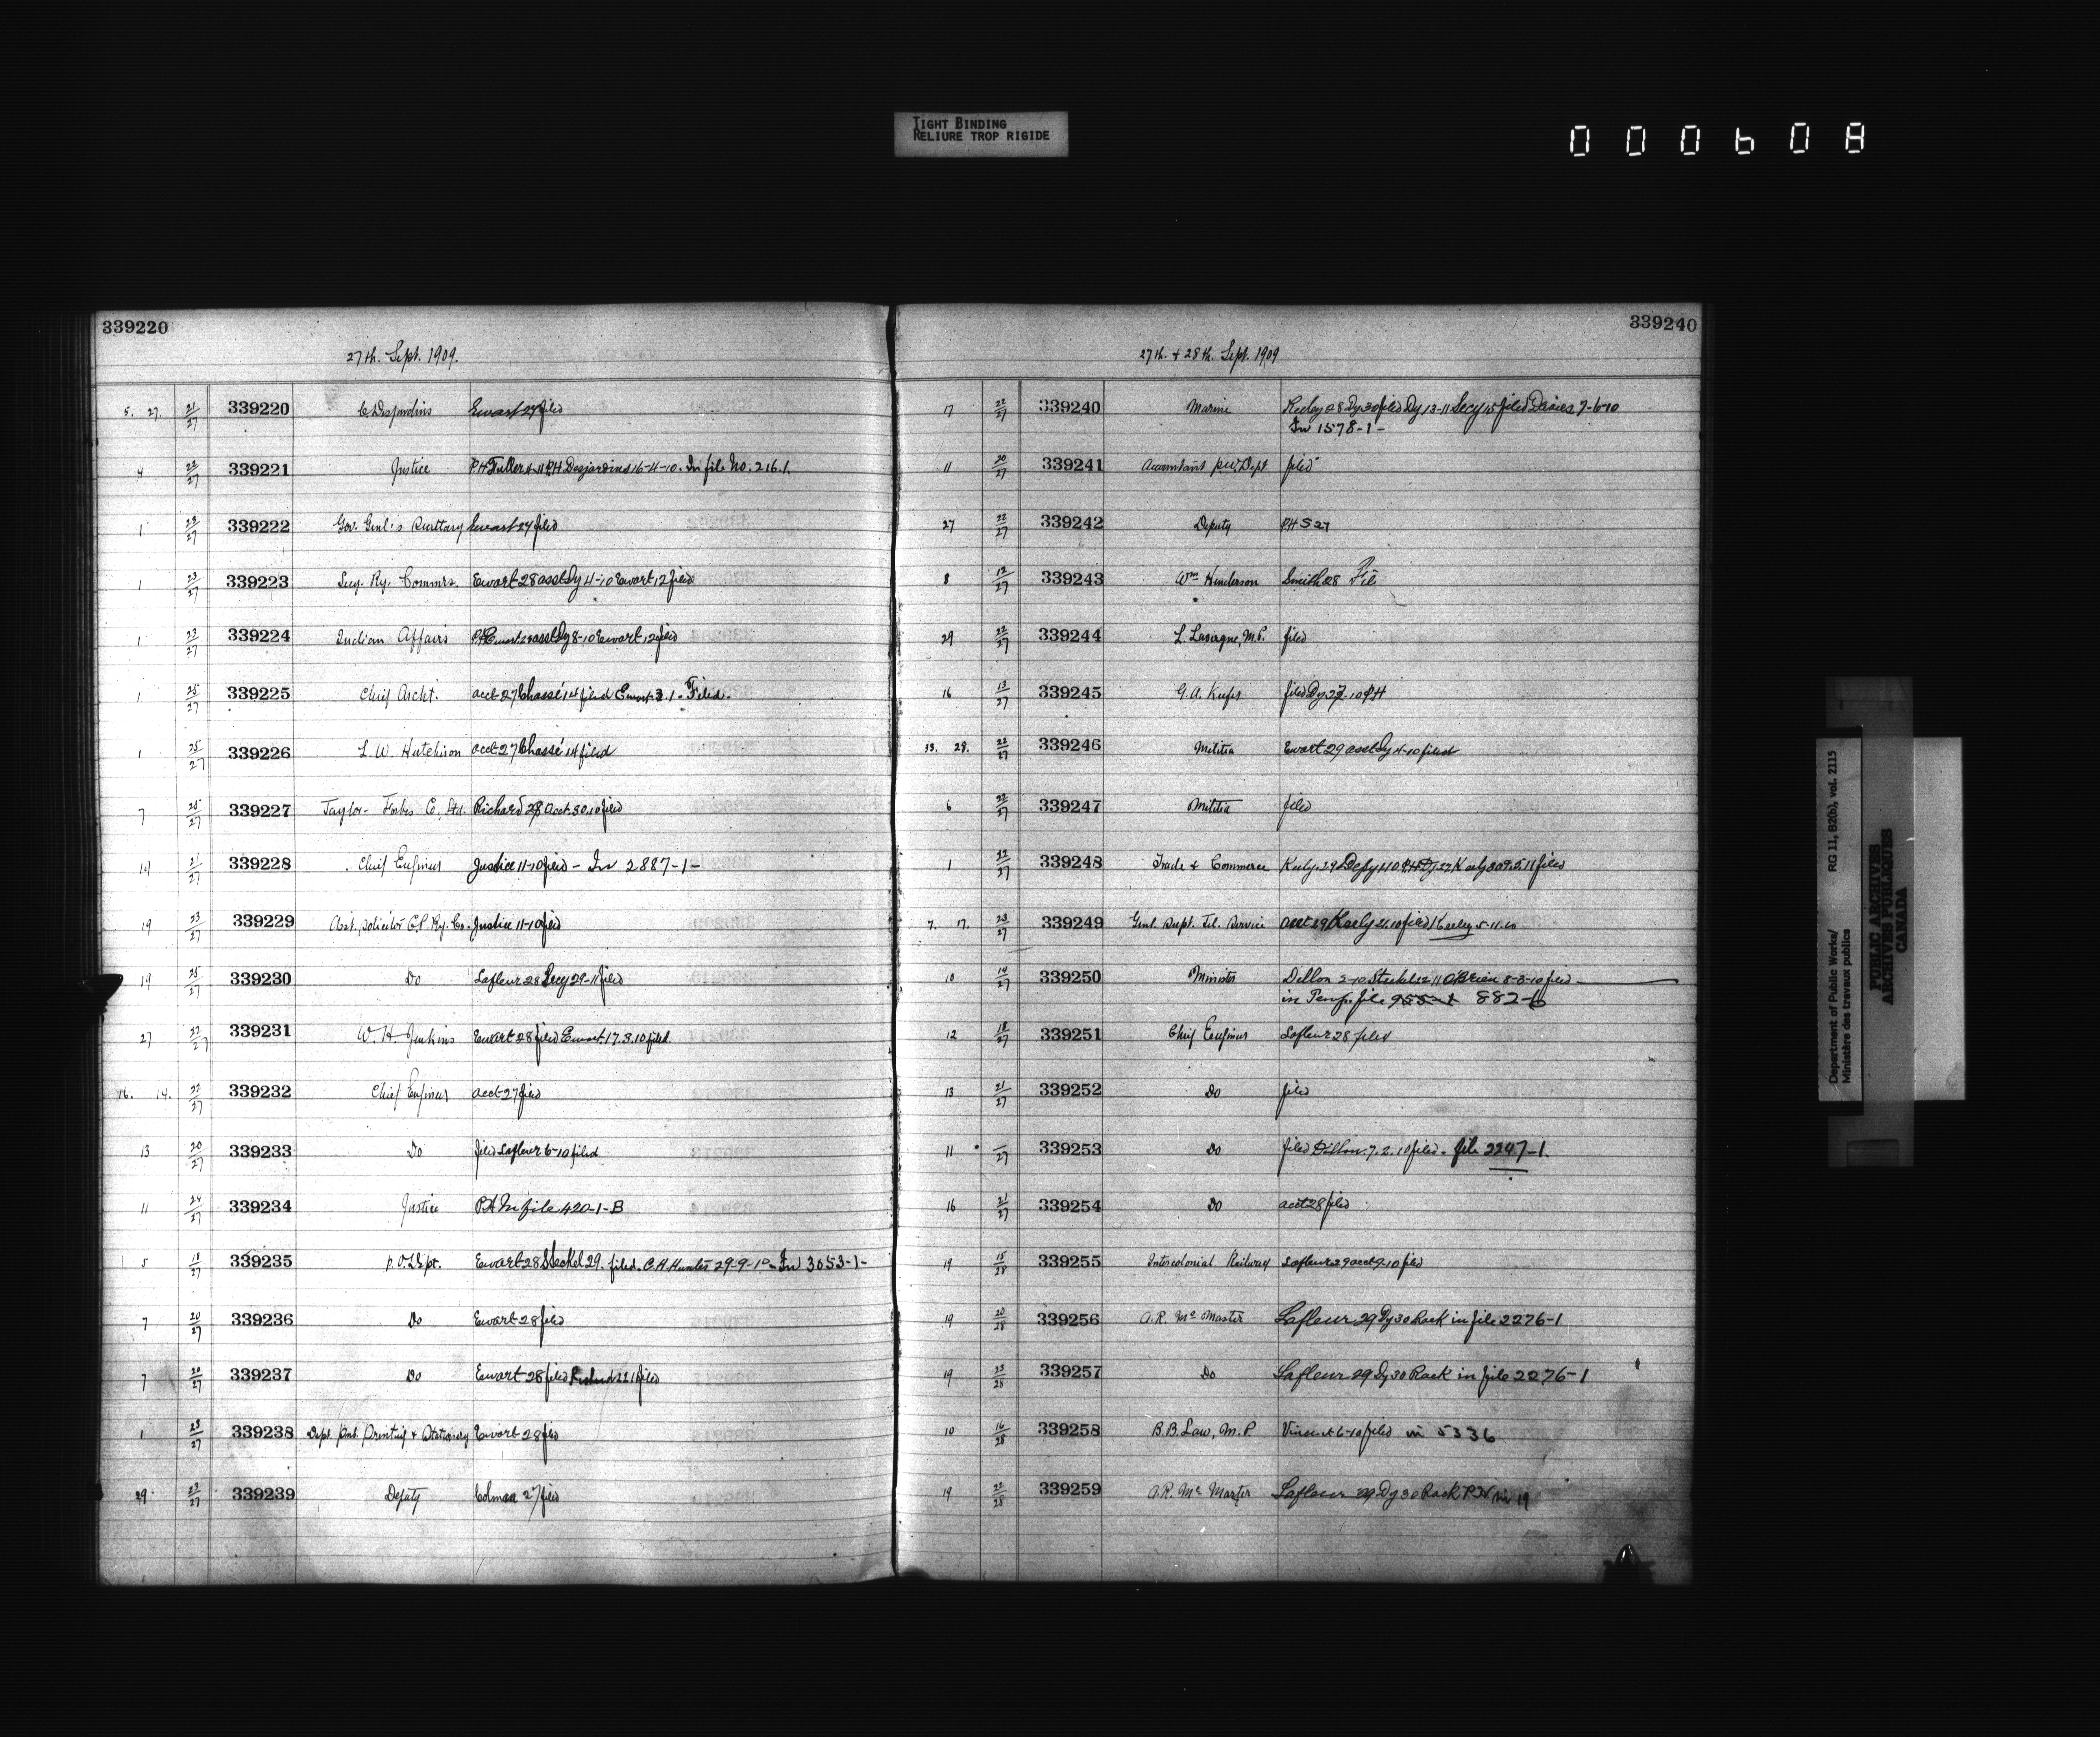 TIGHT BINDING
RELIURE TROP RIGIDE
000608
339220
27th. Sept. 1909.
5. 27. 21/27 339220 C Desjardins Ewart 27 filed
4 22/27 339221 Justice PH Fuller 4-11 PH Desjardins 16-4-10. In file No. 216.1.
1 22/27 339222 Gov. Genl's Ewart 27 filed
1 23/27 339223 Secy. Ry. Commrs. Ewart 28 asst Dy 4-10 Ewart 12 filed
1 23/27 339224 Indian Affairs PH Ewart 28 asst Dy 8-10 Ewart 12 filed
1 25/27 339225 Chief Archt. acct 27 Chassé 14 filed Ewart 3.1- Filed-
1 25/27 339226 L. W. Hutchison acct 27 Chassé 14 filed
7 25/27 339227 Taylor- Forbes C. Ltd. Richard 28 acct. 30.10 filed
14 21/27 339228 Chief Engineer Justice 11-10 filed - In 2887-1-
19 23/27 339229 Asst. Solicitor C.P. Ry. Co. Justice 11-10 filed
19 25/27 339230 Do Lafleur 28 Secy 29-11 filed
27 22/27 339231 W. H Jenkins Ewart 28 filed Ewart 17.3.10 filed.
16. 14. 22/27 339232 Chief Engineer acct 27 filed
13 20/27 339233 Do filed Lafleur 6-10 filed
11 24/27 339234 Justice PH In file 420-1-B
5 18/27 339235 P.O. Dept. Ewart 28 Steckel 29. filed. C.H. Hunter 29-9-10- In 3053-1-
7 20/27 339236 Do Ewart 28 filed
7 20/27 339237 Do Ewart 28 filed Richard 22 1 filed
1 23/27 339238 Dept. Pub. Printing & Stationery Ewart 28 filed
29 23/27 339239 Deputy Colman 27 filed
339240
27th. + 28th. Sept. 1909
17 22/27 339240 Marine Keeley 28 Dy 30 filed Dy 13-11 Secy 15 filed Davies 7-6-10
In 1578-1-
11 20/27 339241 Accountant P.W. Dept filed
27 22/27 339242 Deputy PHS 27
8 12/27 339243 Wm Henderson Smith 28 File
29 22/27 339244 L. Lavergne, M.P. filed
16 13/27 339245 G. A. Keefer filed Dy 27-10 PH
33. 29. 22/27 339246 Militia Ewart 29 asst Dy 4-10 filed
6 22/27 339247 Militia filed
1 22/27 339248 Trade & Commerce Keely. 29 filed
7. 17. 23/27 339249 Genl. Supt. Tel. Service acct 29 Keely 21.10 filed Keeley 5-11.10
10 14/27 339250 Minister Dillon 2-10 Steckel 12 11 OBrien 8-3-10 filed
in Temp. file 882-6
12 18/27 339251 Chief Engineer Lafleur 28 filed
13 21/27 339252 Do filed
11 /27 339253 Do filed Dillon. 7. 2. 10 filed. file 2247-1.
16 21/27 339254 Do acct 28 filed
19 15/28 339255 Intercolonial Railway Lafleur 29 acct 9-10 filed
19 20/28 339256 A.R. Mc Master Lafleur 29 Dy 30 Rack in file 2276-1
19 23/28 339257 Do Lafleur 29 Dy 30 Rack in file 2276-1
10 16/28 339258 B.B. Law, M.P Vincent 6-10 filed in 5336
19 22/28 339259 A.R. Mc Master Lafleur 29 Dy 30 Rack PW in 19
Department of Public Works/ RG 11, B2(b), vol. 2115
Ministère des travaux publics
PUBLIC ARCHIVES
ARCHIVES PUBLIQUES
CANADA